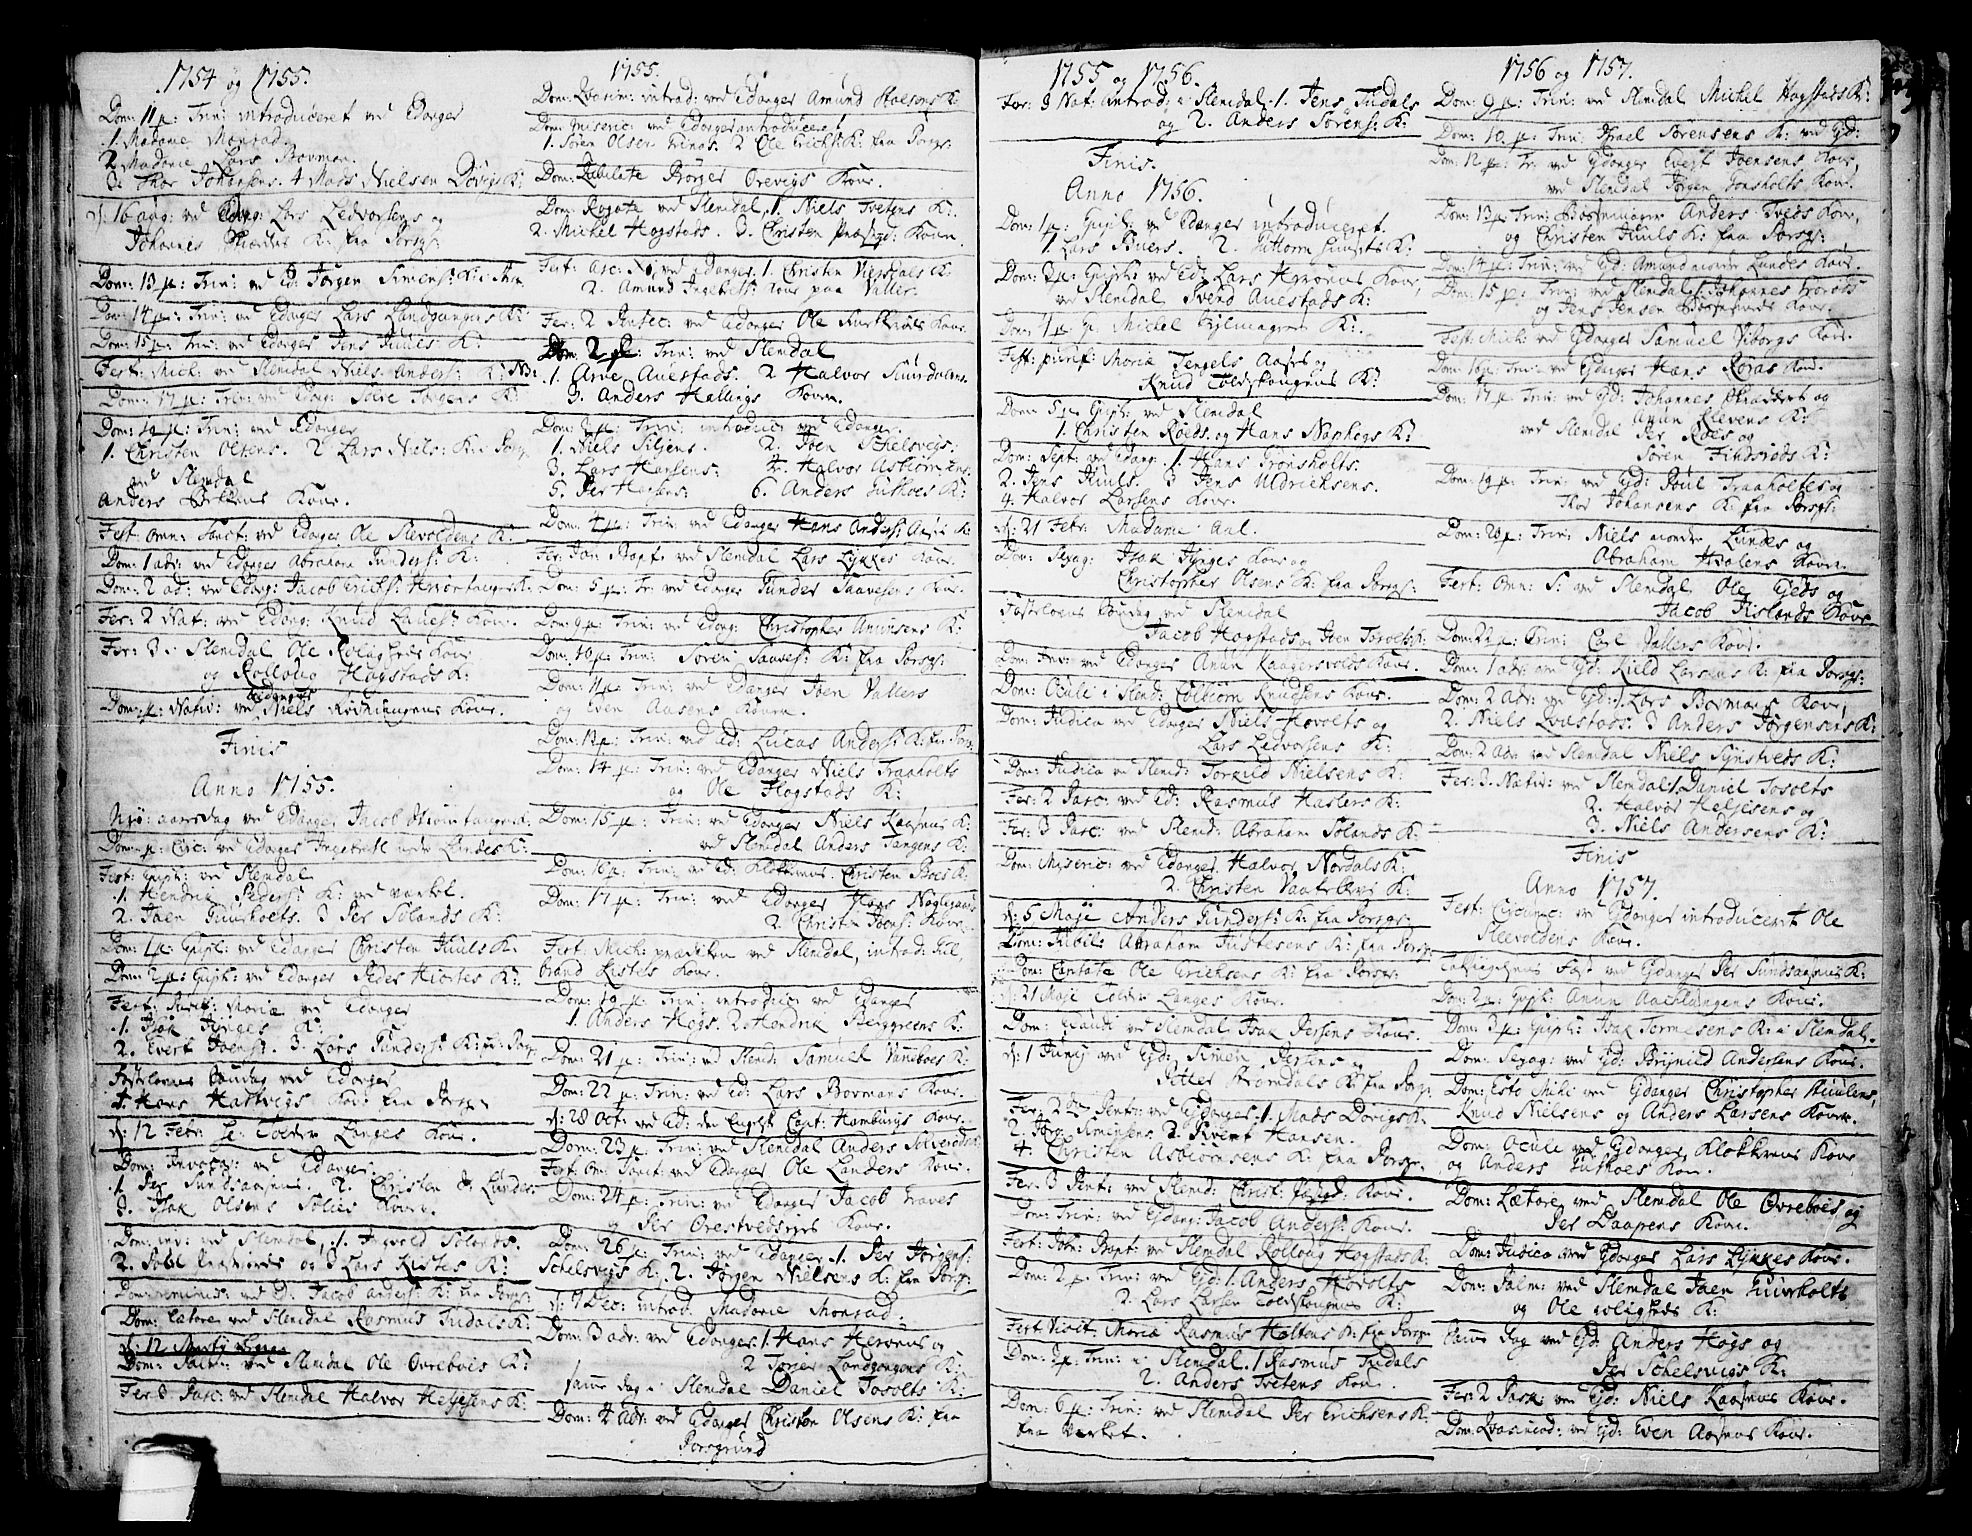 1754 og 1755.
Dom: 11 p: Trin: introduceret ved Edanger
1. Madame Monrad.
2 Madame Lars Bovman.
3. Thor Johansens. 4 Mads Nielsen Døvigs K:
d: 16 aug: ved Edang: Lars Ledvorsens og
Johannes K: fra Porsgr:
Dom: 13 p: Trin: ved Ed: Jørgen Simens: K:
Dom: 14 p: Trin: ved Edanger Lars Landgangens K:
Dom: 15 p: Trin: ved Edanger Jens Juuls K:
Fest: Mich: ved Slemdal Niels Anders: K:
Dom: 17 p: Trin: ved Edang: Torgers K:
Dom: 19 p: Trin: ved Edanger
1. Christen Olsens. 2 Lars Niels: K: i Porsg:
ved Slemdal
Anders Kone.
Fest: Omn: Sanct: ved Edanger Ole Slevoldens K:
Dom: 1 adv: ved Edanger Abraham Gunders: K:
Dom: 2 ad: ved Edang: Jacob Erichs: K:
Fer: 2 Nat: ved Edang: Knud Kone.
Fer: 3. Slemdal Ole Roligheds Kone
og Rolloug Hogstads K:
Dom: p: Nativ: ved Edanger Niels Rødningens Kone.
Finis
Anno 1755.
Nyt-aarsdag ved Edanger Jacob
Dom: p: Circ: ved Edanger Lundes K:
Fest: Epiph: ved Slemdal
1. Hendrik Peders: K: ved værket.
2. Joen Guurholts. 3 Per Solands K:
Dom: 1 p: Epiph: ved Edanger Christen Juuls K:
Dom: 2 p: Epiph: ved Edanger Peder Hiortes K:
Fest: Purif: Mariæ ved Edanger
1. Isak Inges K:
2. Evert Joens:. 3. Lars Gunders: K: fr: Porsg:
Fastelavns Søndag ved Edanger
Hans Hartvigs Kone fra Porsgr:
d: 12 Febr: Sr: Tolder Langes Kone.
Dom: Invocav: ved Edanger.
1. Per Sundsaasens. 2. Christen Lundes
3. Isak Olsens Solies Koner.
Dom: ved Slemdal, 1. Ingvold Solands.
2. og 3 Lars Kistes K:
Dom: reminisc: ved Ed: Jacob Anders: K: fra Porsgr:
Dom: Lætare ved Slemdal Rasmus Tudals K:
d: 12 Martij
Dom: Palm: ved Slemdal Ole Ovreboes K:
Fer: 3 Pasc: ved Slemdal Halvor Helgesens K:
1755.
Dom: Qvasim: introd: ved Edanger Amund Holsens K:
Dom: Miseric: ved Edanger introduceret
1. Søren Olsen 2 Ole Erichs: K: fra Porsgr:
Dom: Jubilate Børger Orevigs Kone.
Dom: Rogate ved Slemdal, 1. Niels Tvetens K:
2. Michel Hogstads. 3. Christen Koner.
Fest: Asc: ved Edanger. 1. Christen K:
2. Amund Kone paa Valler.
Fer: 2 Pentec: ved Edanger Ole Kone.
Dom: 2 p: Trin: ved Slemdal
1. Arne Auestads. 2 Halvor Suurdalens.
3. Anders Hallings Koner.
Dom: 3 p: Trin: introduc: ved Edanger.
1. Niels Siljens. 2. Joen Schelsvigs.
3. Lars Hansens: 4. Halvor Asbiørnsens
5. Per Hansens: 6. Anders Gutkoes K:
Dom: 4 p: Trin: ved Edanger Hans Anders: K:
Fer: Joh: Bapt: ved Slemdal Lars Lykkes Kone.
Dom: 5 p: Tr: ved Edanger Gunder Saavesens Kone.
Dom: 9 p: Trin: ved Edang: Christopher Amunsens K:
Dom: 10 p: Trin: Søren K: fra Porsgr:
Dom: 11 p: Trin: ved Edanger Joen Vallers
og Even Aasens Koner.
Dom: 12 p: Trin: ved Ed: Lucas Anders: K: fra Porsg:
Dom: 14 p: Trin: ved Edanger Niels Traaholts
og Ole Hogstads K:
Dom: 15 p: Trin: ved Edanger Niels Raasnes K:
ved Slemdal Anders Tangens K:
Dom: 16 p: Trin: ved Ed: Klokkerens Christen Boes K:
Dom: 17 p: Trin: ved Edanger Hans
2. Christen Joens: Kone.
Fest: Mich: prædiken ved Slemdal, introd:
brand Kistes Kone.
Dom: 19 p: Trin: introduc: ved Edanger
1. Anders Høgs. 2. Hendrik Berggreens K:
Dom: 21 p: Trin: ved Slemd: Samuel K:
Dom: 22 p: Trin: ved Ed: Lars Bovmans Kone.
d: 28 Oct: ved Ed: den Engelst Capt: Hamburgs Kone.
Dom: 23 p: Trin: ved Slemdal Anders K:
Fest: Om: Sanct: ved Edanger Ole Landers Kone.
Dom: 24 p: Trin: ved Edanger Jacob Graves
og Per Orestveds Kone.
Dom: 26 p: Trin: ved Edanger. 1. Per Jørgens:
Schelsvigs K: 2. Jørgen Nielsens K: fra Porsgr:
d: 7 Dec: introd. Madame Monrad.
Dom: 3 adv: ved Edanger. 1. Hans og
2 Torier Landgangens K:
samme dag i Slemdal Daniel Tosolts K:
Dom: 4 Adv: ved Edanger Christen Olsens K: fra
Porsgrund
1755 og 1756.
Fer: 3 Nat: introd: i Slemdal. 1. Jens Tudals
og 2. Anders Sørens: K:
Finis.
Anno 1756.
Dom: 1 p: Epiph: ved Edanger introduceret.
1. Lars Siuers. 2. Guttorm K:
Dom: 2 p: Epiph: ved Ed: Lars Kone,
ved Slemdal Svend Auestads K:
Dom: 4 p: E: Michel K:
Fest: purif: Mariæ Tengels Aases og
Knud Toldskougens K:
Dom: 5 p Epiph: ved Slemdal
1. Christen Røeds. og Hans K:
Dom: Sept: ved Edang: 1. Hans Grønsholts.
2. Jens Juuls. 3 Jens Uldrichsens.
4. Halvor Larsens Kone.
d: 21 Febr: Madame Aal.
Dom: Sexag: Isak Inges Kone og
Christopher Olsens K: fra Porsgr:
Fastelavns Søndag ved Slemdal
Jacob Hogstads og Joen Torolts K:
Dom: Inv: ved Edanger Anun Kone.
Dom: Oculi i Slemd: Colbiørn Knudsens Kone.
Dom: Judica ved Edanger Niels Hovolts og
Lars Ledvorsens K:
Dom: Judica ved Slemd: Torkild Nielsens K:
Fer: 2 Pasc: ved Ed: Rasmus Haslers K:
Fer: 3 Pasc: ved Slemd: Abraham Solands K:
Dom: Miseric: ved Edanger. Halvor Nordals K:
2. Christen K:
d: 5 Maji Anders Gunders: K: fra Porsgr:
Dom: Jubil: Abraham Justesens K: fra Porsgr:
Dom: Cantate Ole Erichsens K: fra Porsgr:
d: 21 Maji Tolder Langes Kone.
Dom: Exaudi ved Slemdal Isak Persens Kone.
d: 1 Junij ved Ed: Simen Persens og
Petter Strømdals K: fra Porsgr:
Fer: 2 Pent: ved Edanger. 1. Mads Døvigs K:
2. Jørg: Simensens 3. Sivert Hansen.
4. Christen Asbiørnsens K: fra Porsgr:
Fer: 3 Pent: ved Slemd: Christ: Kone.
Dom: Trin: ved Edang: Jacob Anders: Kone.
Fest: Joh: Bapt: ved Slemdal Rolloug Hogstads K:
Dom: 2 p: Trin: ved Ed: 1. Anders Hovolts
2. Lars Larsen Toldskougens K:
Fest: Visit: Mariæ Rasmus Holtens K: fra Porsgr:
Dom: 3 p: Trin: i Slemdal. 1 Rasmus Tudals
2. Anders Tvetens Kone.
Dom: 6 p: Trin: ved Slemdal Per Erichsens K:
fra Værket.
1756 og 1757.
Dom: 9 p: Trin: ved Slemdal Michel Hogstads K:
Dom: 10 p: Trin: Israel Sørensens K: ved Ed:
Dom: 12 p: Tr: ved Edanger Evert Joensens Kone,
ved Slemdal Jørgen Gonsholts Kone.
Dom: 13 p: Trin: Bøssemager Anders Tveds Kone,
og Christen Juuls K: fra Porsgr:
Dom: 14 p: Trin: ved Ed: Amund nordre Lundes Kone.
Dom: 15 p: Trin: ved Slemdal 1. Johannes
og Jens Jensen Kone.
Fest: Mich: ved Edanger Samuel Viborgs Kone.
Dom: 16 p: Trin: ved Edanger Hans Røras Kone.
Dom: 17 p: Trin: ved Ed: Johannes og
Anun Klevens K:
ved Slemdal Per Roes og
Søren Findsrøds K:
Dom: 19 p: Trin: ved Ed: Poul Traaholtes og
Thor Johansens K: fra Porsgr:
Dom: 20 p: Trin: Niels nordre Lundes og
Abraham Hvalens Koner.
Fest: Omn: S: ved Slemdal Ole Gieds og
Jacob Fislands Kone
Dom: 22 p: Trin: Carl Vallers Kone.
Dom: 1 adv: ved Ed: Kield Larsens K: fra Porsgr:
Dom: 2 Adv: ved Ed: 1. Lars Bovmans Kone,
2. Niels Qvæstads. 3 Anders Jørgensens K:
Dom: 2 Adv ved Slemdal Niels K:
Fer: 3. Nativ: ved Slemdal 1. Daniel Tosolts
2. Halvor Helgesens og
3. Niels Andersens K:
Finis
Anno 1757.
Fest: Circumc: ved Edanger introduceret Ole
Slevoldens Kone.
Taksigelsens Fæst ved Edanger Per Sundsaasens K:
Dom: 2 p: Epiph: Anun Aaeklungens Kone.
Dom: 3 p: Epiph: Isak Tormesens K: i Slemdal.
Dom: Sexag: ved Ed: Brynild Andersens Kone.
Dom: Esto Mihi ved Edanger Christopher
Knud Nielsens og Anders Larsens Koner.
Dom: Oculi ved Edanger Klokkerens Kone
og Anders Gutkoes Kone.
Dom: Lætare ved Slemdal Ole Ovreboes, og
Per Daapens Koner.
Dom: Judica ved Edanger Lars Lykkes Kone.
Dom: Palm: ved Slemdal Joen Guurholts
og Ole roligheds K:
Samme dag ved Ed: Anders Høgs og
Per Schelsvigs K:
Fer: 2 Pask: ved Ed: Niels Raasnes Kone.
Dom: Qvasimod: ved Ed: Even Aasens Kone.